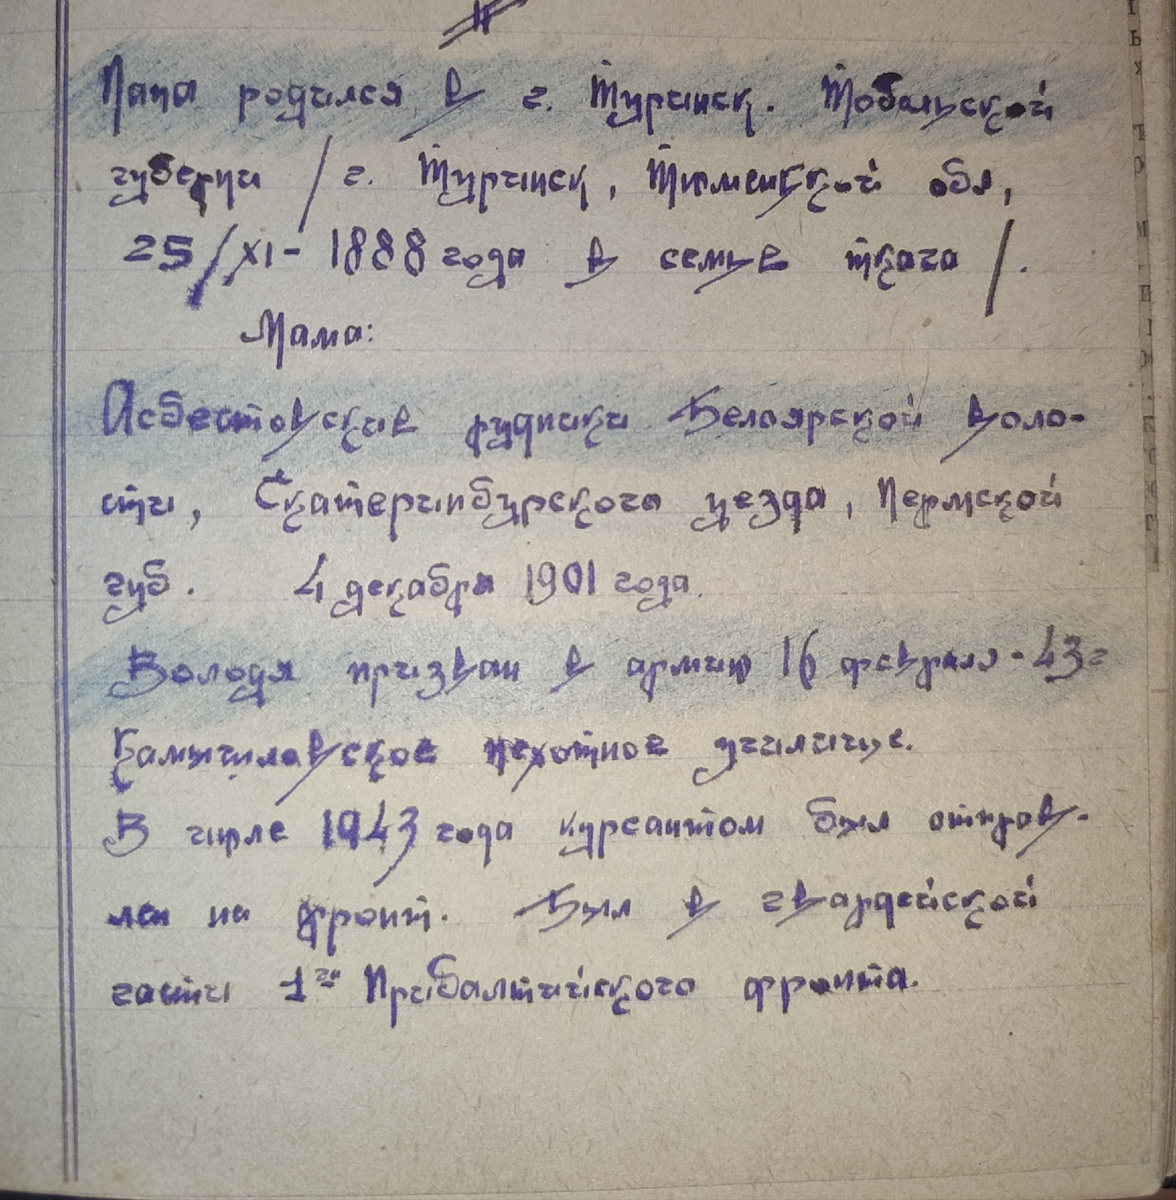 Папа родился в г. Туринск. Тобольской
губерни / г. Туринск, Тюменской обл,
25/XI - 1888 года в семье ткача /.
Мама:
Асбестовские рудники Белоярской воло-
сти, Екатеринбурского уезда, Пермской
губ. 4 декабря 1901 года.
Володя призван в армию 16 февраля - 43 г
Камышловское пехотное училище.
В июле 1943 года курсантом был отправ-
лен на фронт. Был в гвардейской
части 1го Прибалтийского фронта.